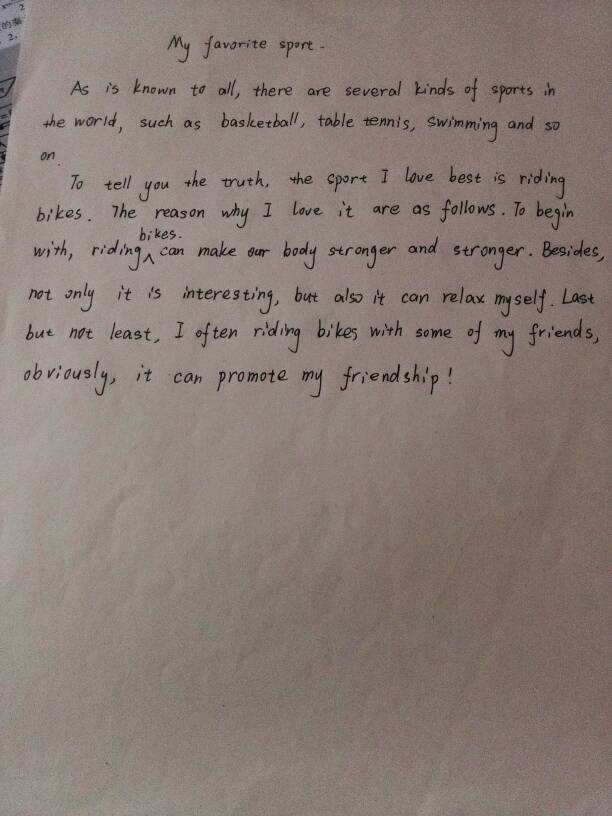 My favorite sport.
As is known to all, there are several kinds of sports in
the world, such as basketball, table tennis, swimming and so
on.
To tell you the truth, the sport I love best is riding
bikes. The reason why I love it are as follows. To begin
bikes.
with, riding ^ can make our body stronger and stronger. Besides,
not only it is interesting, but also it can relax myself. Last
but not least, I often riding bikes with some of my friends,
obviously, it can promote my friendship!